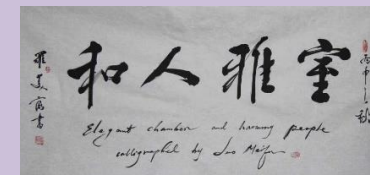 丙申之秋
室雅人和
罗美富书
Elegant chamber and harmony people
calligraphed by Luo Meifu